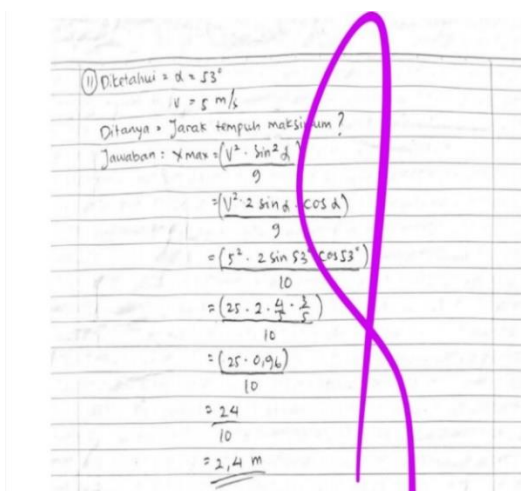 11 Diketahui = α = 53°
V = 5 m/s
Ditanya = Jarak tempuh maksimum ?
Jawaban : Xmax = (V² · sin² α)
g
= (V² · 2 sin α · cos α)
g
= (5² · 2 sin 53° cos 53°)
10
= (25 · 2 · 4/5 · 3/5)
10
= (25 · 0,96)
10
= 24
10
= 2,4 m